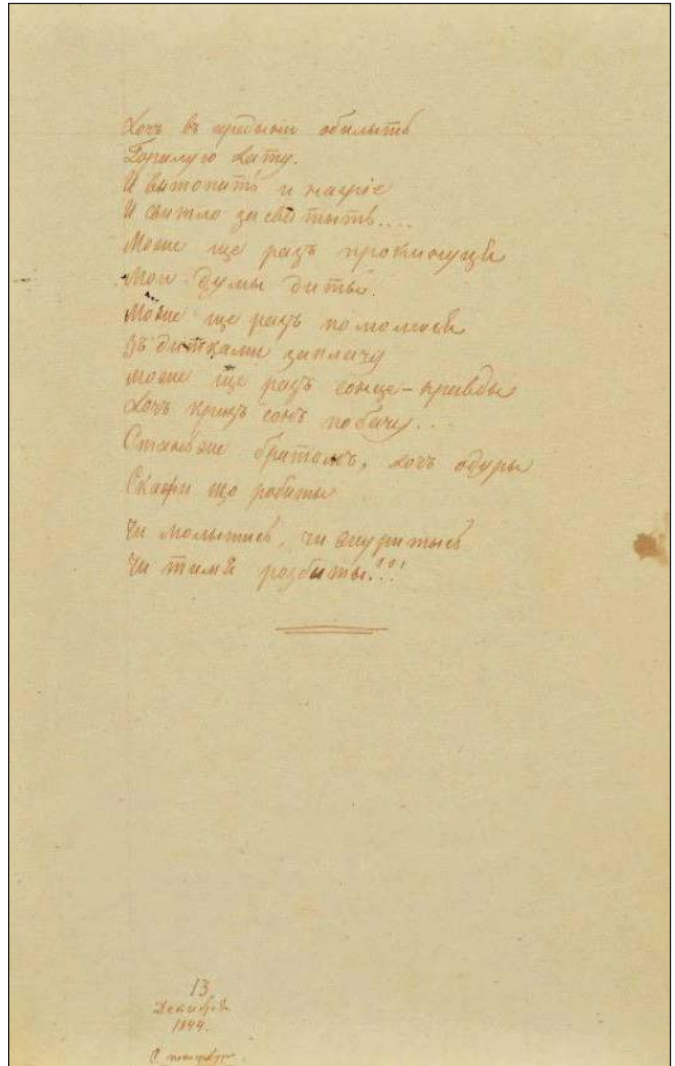 Хочь въ предыки обилыть
Горилую хату.
И вытопить и нагріе
И свитло засвитыть....
Може ще разъ прокинуця
Мои думы диты.
Може ще разъ помолюсь
Зъ дитками заплачу
Може ще разъ сонце-правды
Хочь кризь сонъ побачу..
Станьже братомъ, хочь одуры
Скажи що робыты
Чи молытись, чи журитысь
Чи тимя розбиты!!!
13
Декабря
1844.